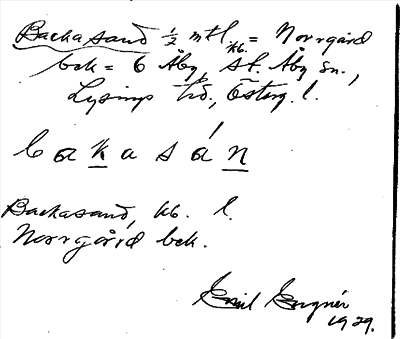 Backasand ½ mtl kb. = Norrgård
bek = 6 Åby, St. Åby sn.,
Lysings hd., Österg. l.
b a k a s á n
Backasand, kb. l.
Norrgård bek.
Emil Engnér
1929.